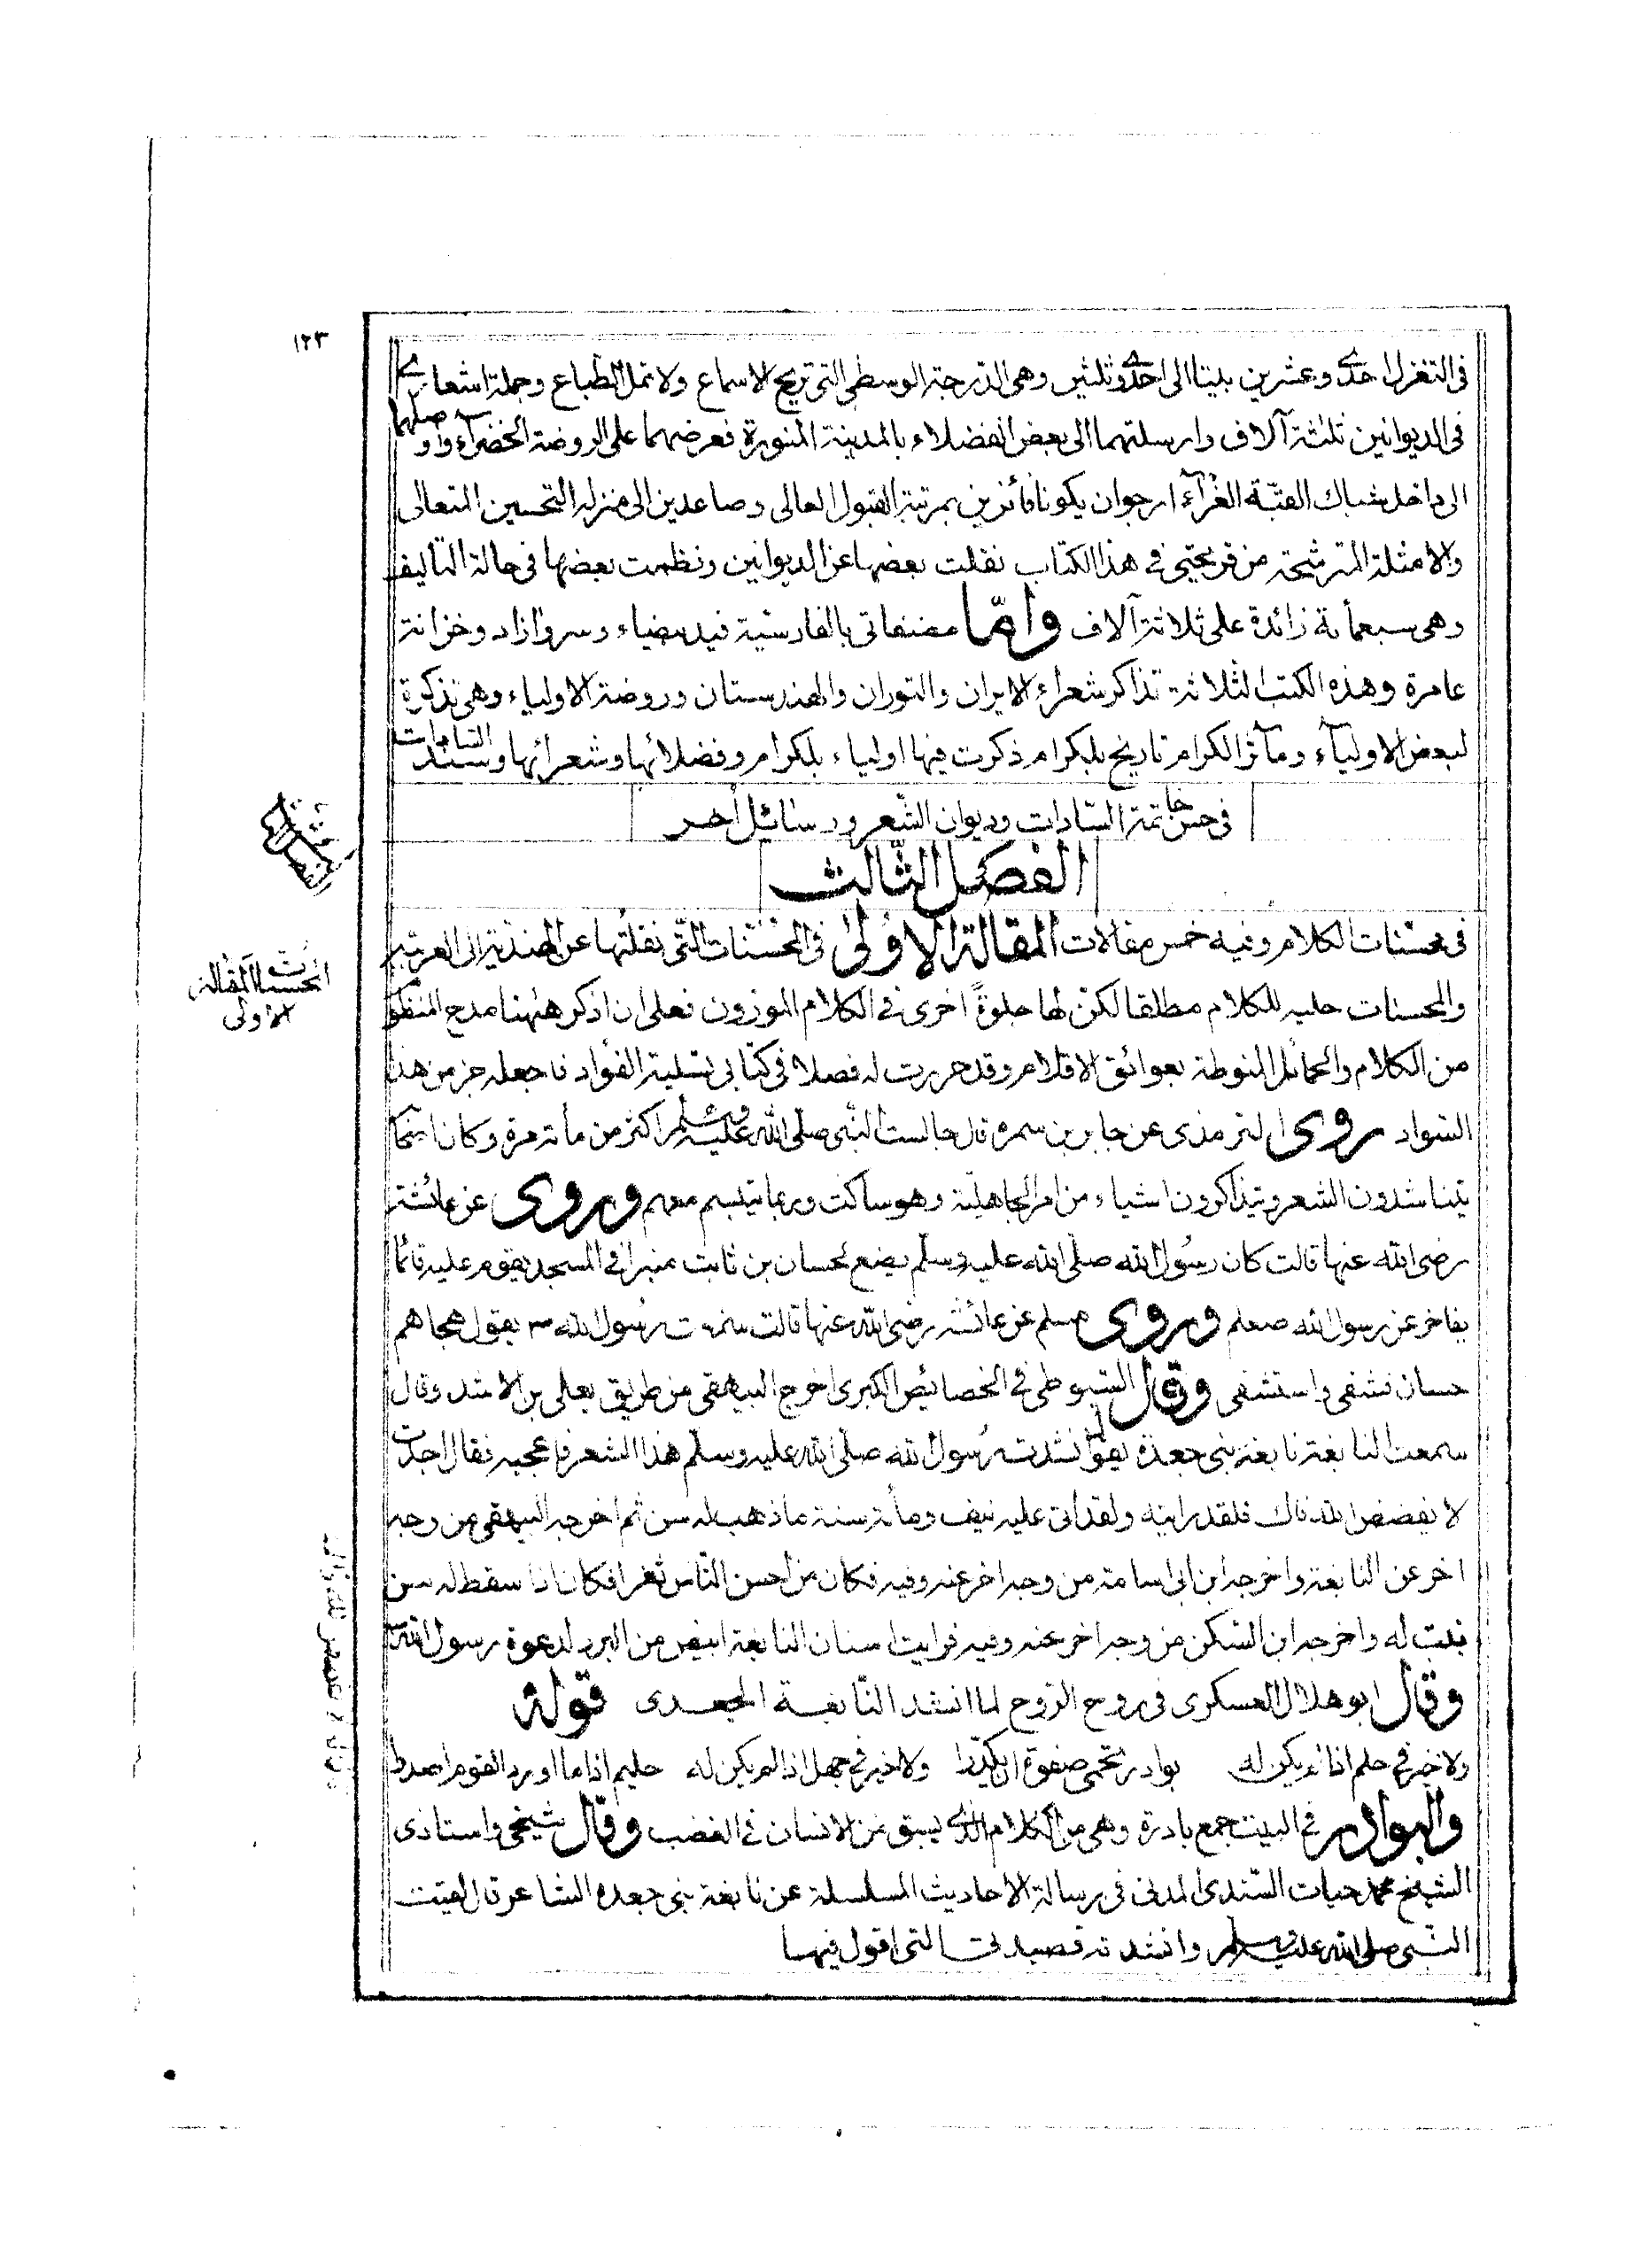 ١٢٣
فى التغزل احدى وعشرين بيتا الى احدى وثلثين وهى الدرجة الوسطى التى تريح الاسماع ولا تمل الطباع وجملة اشعارى
فى الديوانين ثلثة آلاف وارسلتهما الى بعض الفضلاء بالمدينة المنورة فعرضهما على الروضة الخضرآء واوصلهما
الى داخل شباك القبّة الغرّآء ارجو ان يكونا فائزين بمرتبة القبول العالى وصاعدين الى منزلة التحسين المتعالى
والامثلة المترشحة من قريحتى فى هذا الكتاب نقلت بعضها عن الديوانين ونظمت بعضها فى حالة التاليف
وهى سبعمأية زائدة على ثلاثة آلاف وامّا مصنفاتى بالفارسية فيد بيضاء وسرو ازاد وخزانة
عامرة وهذه الكتب الثلاثة تذاكر شعراء الايران والتوران والهندرستان وروضة الاولياء وهى تذكرة
لبعض الاوليآء ومآثر الكرام تاريخ بلكرام ذكرت فيها اولياء بلكرام وفضلائها وشعرائها وسند السادات
فى حسن خاتمة السّادات وديوان الشّعر ورسائل أخر
الفصل الثّالث
الفصل الثالث
فى محسّنات الكلام وفيه خمس مقالات المقالة الاولىٰ فى المحسّنات التّى نقلتُها عن الهندية الى العربية
المحسنات المقالة
الاولى
والمحسنات حلية للكلام مطلقا لكنّ لها جلوةً اخرى فى الكلام الموزون فعلى ان اذكر ههنا مدح المنظوم
من الكلام والحمائل المنوطة بعواتق الاقلام وقد حررت له فصلا فى كتابى تسلية الفؤاد فاجعله جز من هذا
السّواد روى الترمذى عن جابر بن سمره قال جالست النّبى صلّى اللّه عليه وسلّم اكثر من مأة مرة وكان اصحا
يتناشدون الشعر ويتذاكرون اشياء من امر الجاهليّة وهو ساكت وربما يتبسم معهم وروى عن عائشة
رضى اللّه عنها قالت كان رسُول اللّه صلّى اللّه عليه وسلّم يضع لحسان بن ثابت منبرا فى المسجد يقوم عليه قائما
يفاخر عن رسول اللّه صعلم وروى مسلم عن عائشة رضى اللّه عنها قالت سمعت رسُول اللّه ص يقول هجاهم
حسان فشفى واستشفى وقال السّيوطى فى الخصائص الكبرى اخرج البيهقى من طريق يعلى بن الاشدق قال
سمعت النابغة نابغة بنى جعدة يقول انشدت رُسول اللّه صلّى اللّه عليه وسلّم هذا الشعر فاعجبه فقال اجدت
لا يفضض اللّه فاك فلقد رايته ولقد أتى عليه نيف ومأة سنة ما ذهب له سن ثم اخرجه البيهقى من وجه
اخر عن النابغة واخرجه ابن ابى اسامة من وجه اخر عنه وفيه فكان من احسن النّاس ثغرا فكان اذا سقط له سن
نبت له واخرجه ابن السّكن من وجه اخر عنه وفيه فرايت اسنان النابغة ابيض من البرد لدعوة رسول اللّه ص
وقال ابو هلال العسكرى فى روح الرّوح لما انشد النّابغة الجعدى قوله
ولا خير فى حلم اذا لم يكن له بوادر تحمى صفوة ان يكدّرا ولا خير فى جهل اذا لم يكن له حليم اذا ما اورد القوم اصدرا
والبوادر فى البيت جمع بادرة وهى من الكلام الذى يسبق من الانسان فى الغضب وقال شيخى واستاذى
الشيخ محمد حيات السّندى المدنى فى رسالة الاحاديث المسلسلة عن نابغة بنى جعده الشاعر قال لقيت
النّبى صلى اللّه عليه وسلم وانشدته قصيدتى التى اقول فيها